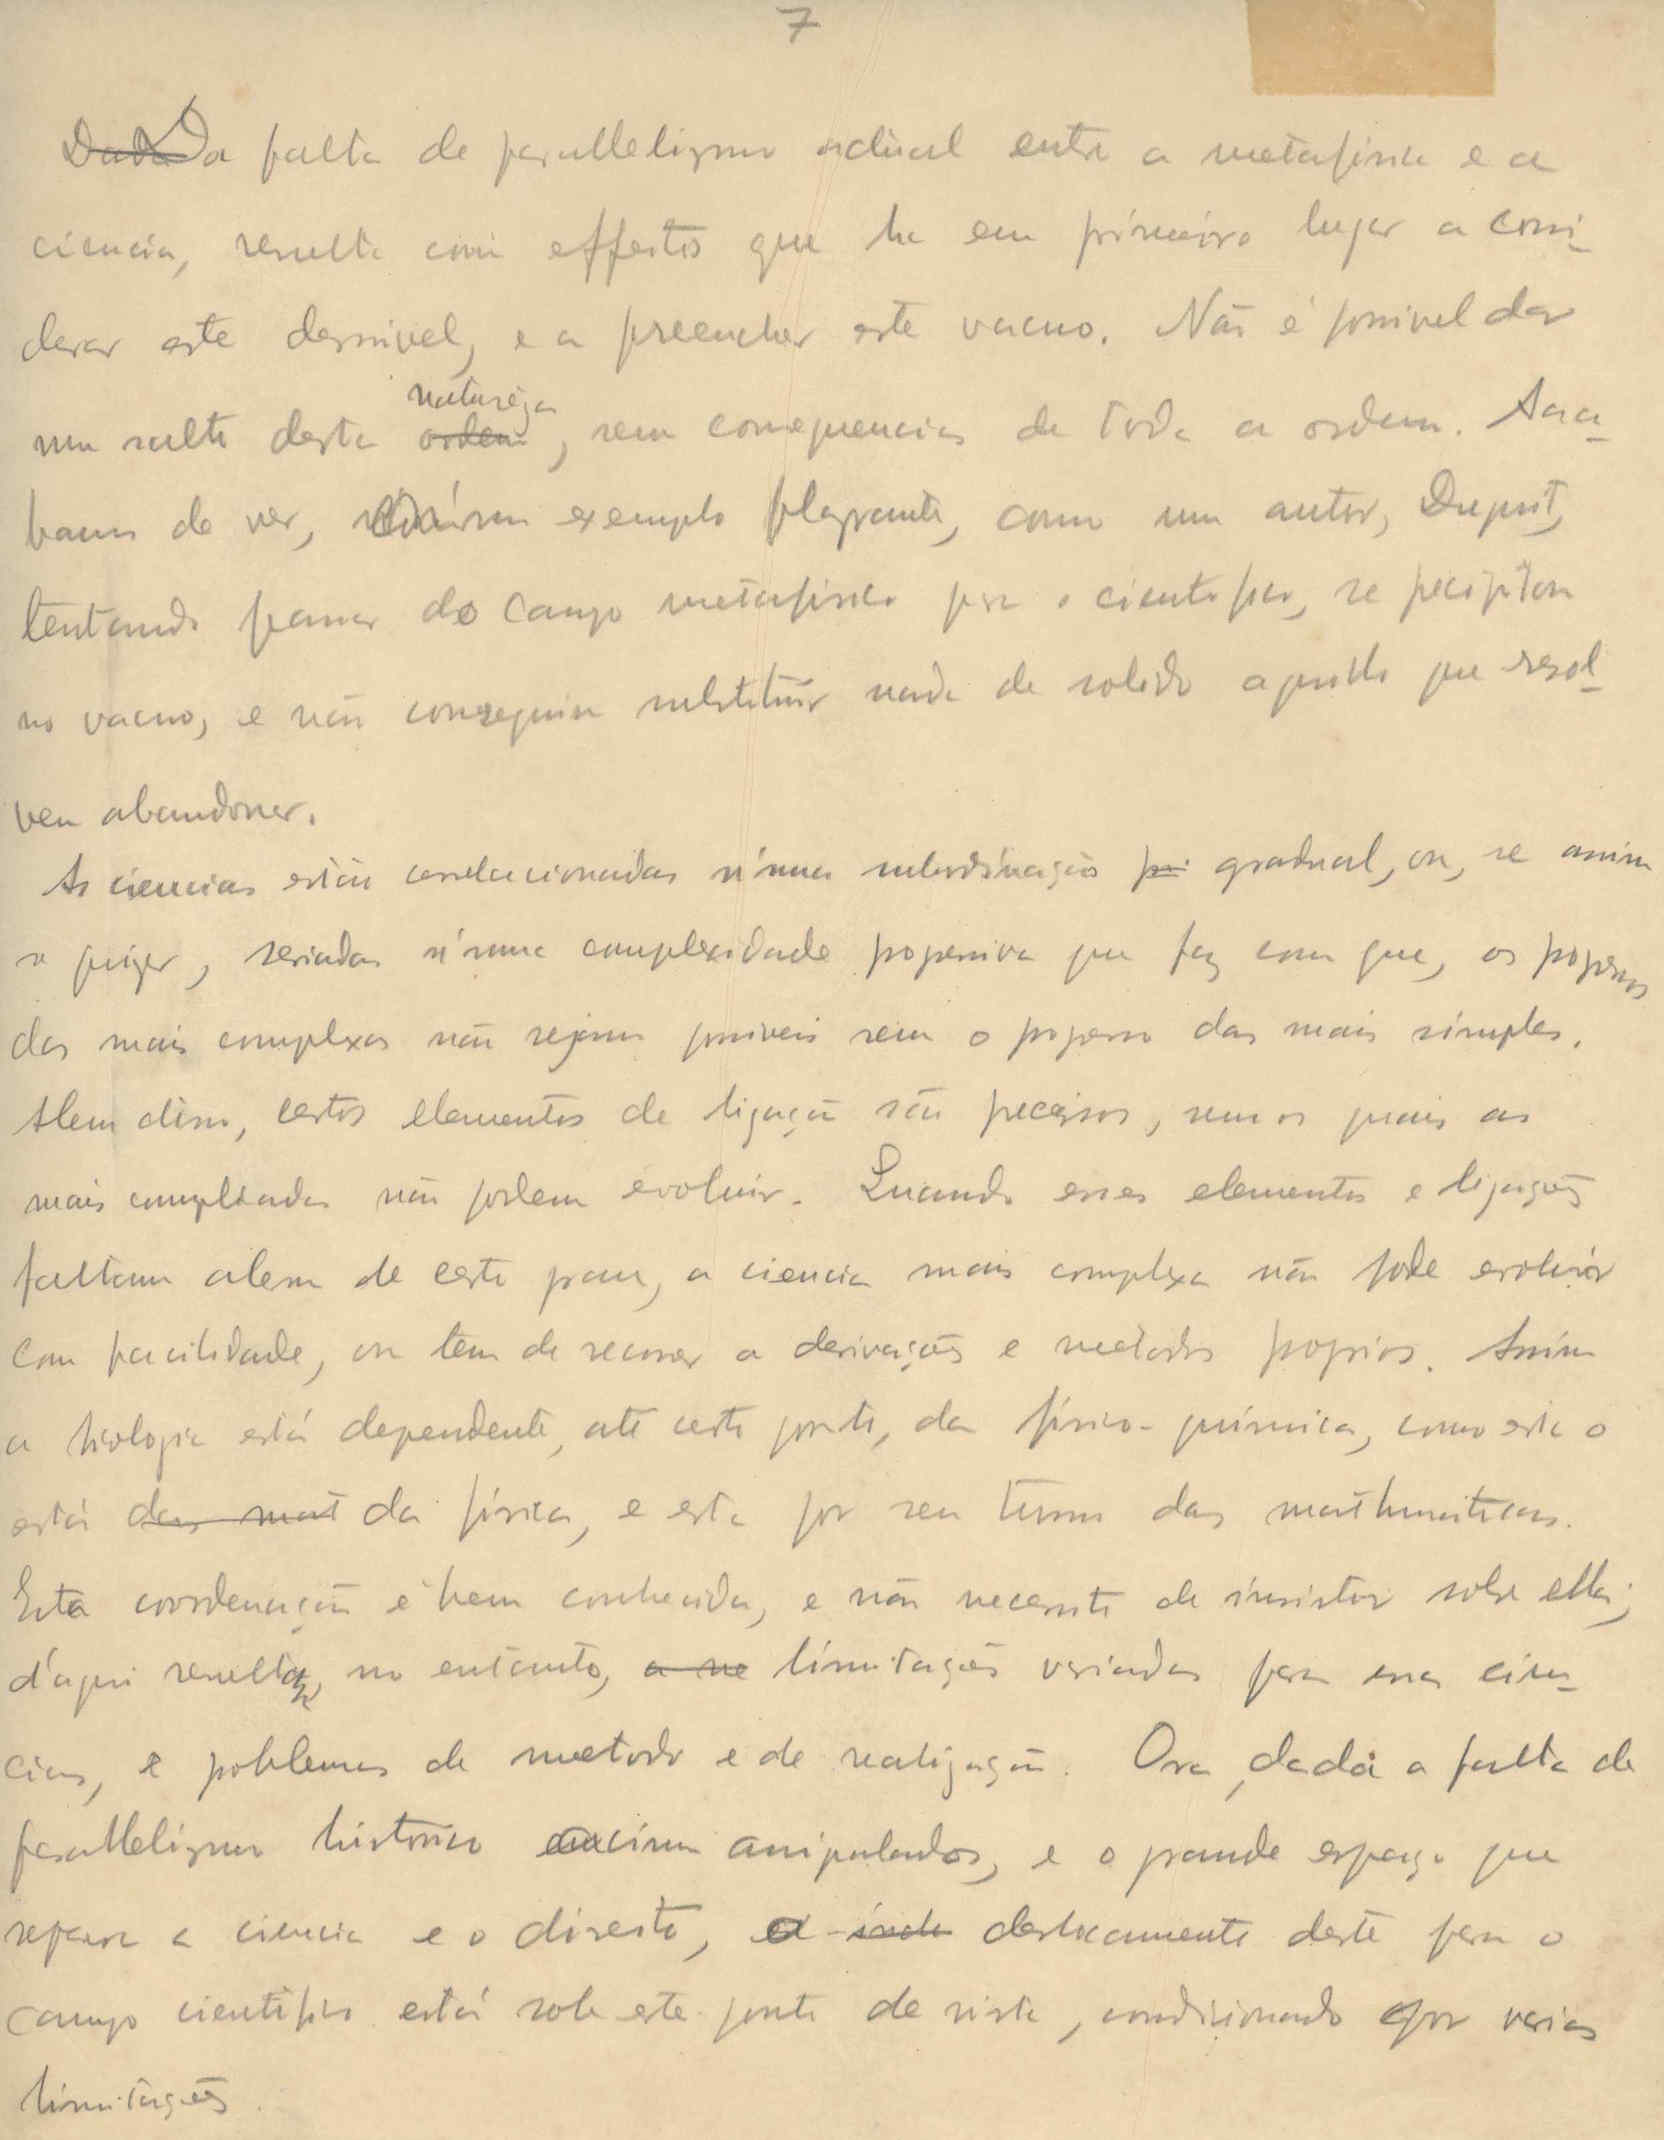 7
Da falta de parallelismo actual entre a metafisica e a
ciencia, resulta com effeito que ha em primeiro lugar a consi-
derar este desnivel, e a preencher este vacuo. Não é possivel dar
um salto desta natureza, sem consequencias de toda a ordem. Aca-
bamos de ver, n'um exemplo flagrante, como um autor, Duguit,
tentando passar do campo metafisico para o cientifico, se precipitou
no vacuo, e não conseguiu substituir nada de solido aquillo que resol-
veu abandonar.
As ciencias estão correlacionadas n'uma subordinação gradual, ou, se assim
se quizer, seriadas n'uma complexidade progressiva que faz com que, os progressos
das mais complexas não sejam possiveis sem o progresso das mais simples.
Alem disso, certos elementos de ligação são precisos, sem os quais as
mais complicadas não podem evoluir. Quando esses elementos e ligações
faltam alem de certo grau, a ciencia mais complexa não pode evoluir
com facilidade, ou tem de recorrer a derivações e metodos proprios. Assim
a biologia está dependente, até certo ponto, da físico-química, como esta o
está das mat da física, e esta por seu turno das mathematicas.
Esta coordenação é bem conhecida, e não necessito de insistir sobre ella;
d'aqui resultam, no entanto, a ne limitações variadas para essas cien-
cias, e problemas de metodo e de realização. Ora, dada a falta de
parallelismo historico acima assignalado, e o grande espaço que
separa a ciencia e o direito, o deslocamento deste para o
campo cientifico está sob este ponto de vista, condicionado por varias
limitações.